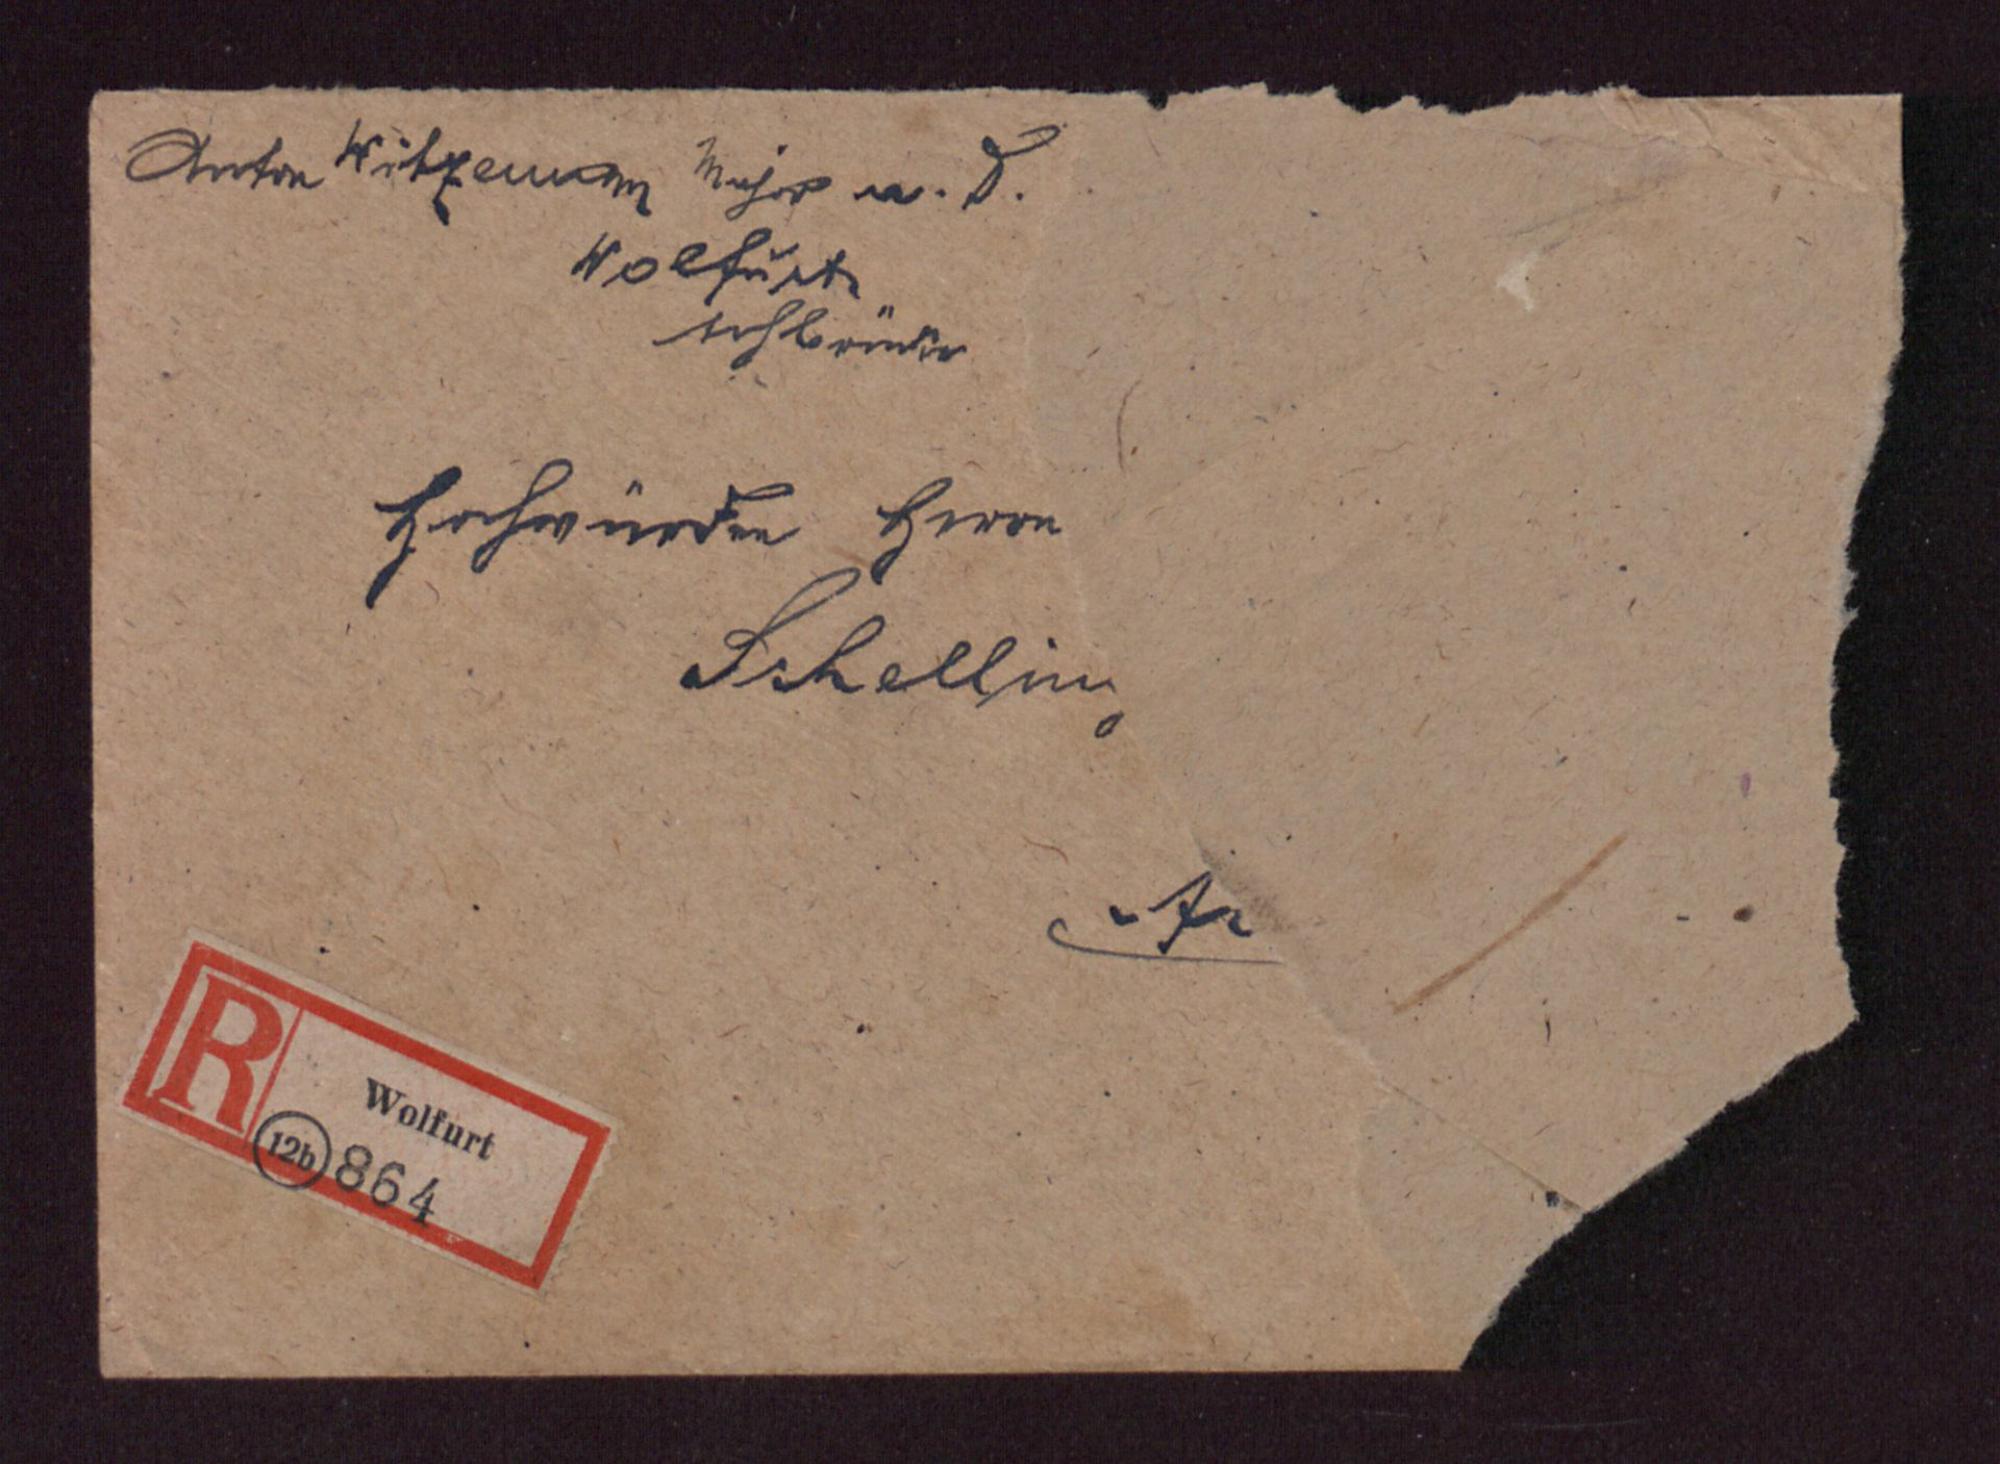 Anton Witzemann Major a. D.
Wolfurt
Hochwürden Herrn
Schelling
R
Wolfurt
12b 864